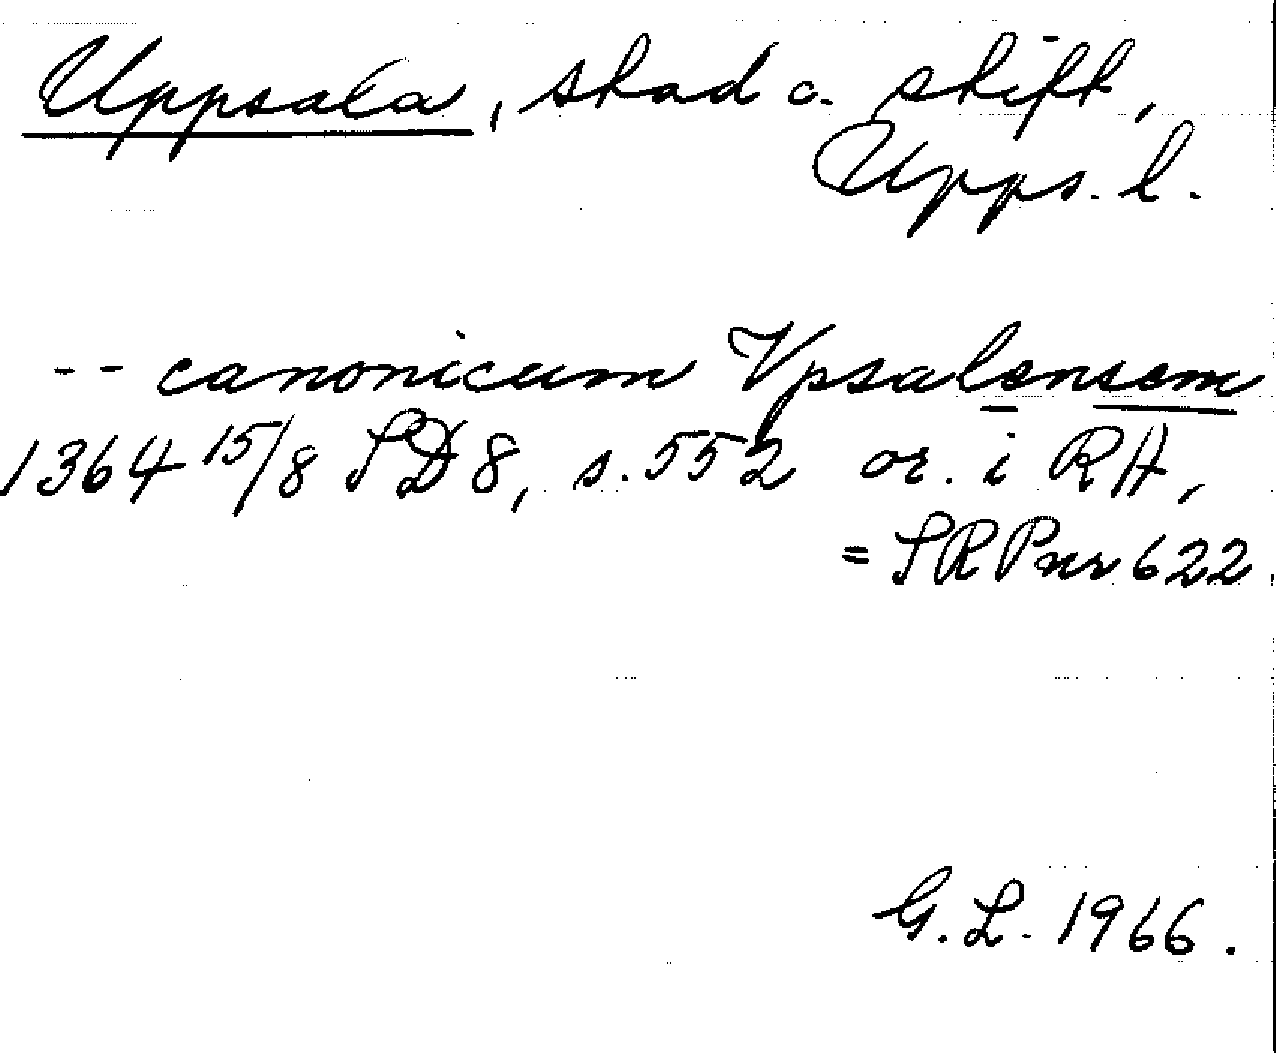 Uppsala, stad o. stift,
Upps. l.
-- canonicum Vpsalensem
1364 15/8 SD 8, s. 552 or. i RA,
= SRP nr 622.
G. L. 1966.